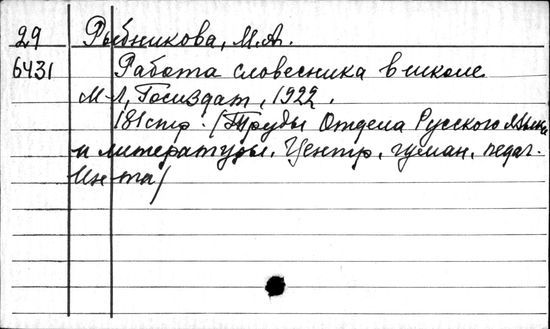 29 Рыбникова, М.А.
6431 Работа словесника в школе
М-Л, Госиздат, 1922.
181 стр. (Труды Отдела Русского языка
и литературы. Центр. гуман. педаг.
Ин-та)